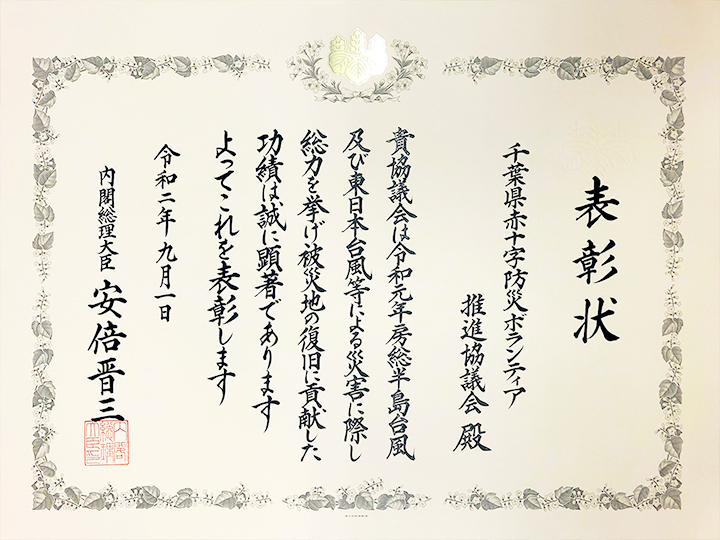 表彰状
千葉県赤十字防災ボランティア
推進協議会 殿
貴協議会は令和元年房総半島台風
及び東日本台風等による災害に際し
総力を挙げ被災地の復旧に貢献した
功績は誠に顕著であります
よってこれを表彰します
令和二年九月一日
内閣総理大臣 安倍晋三